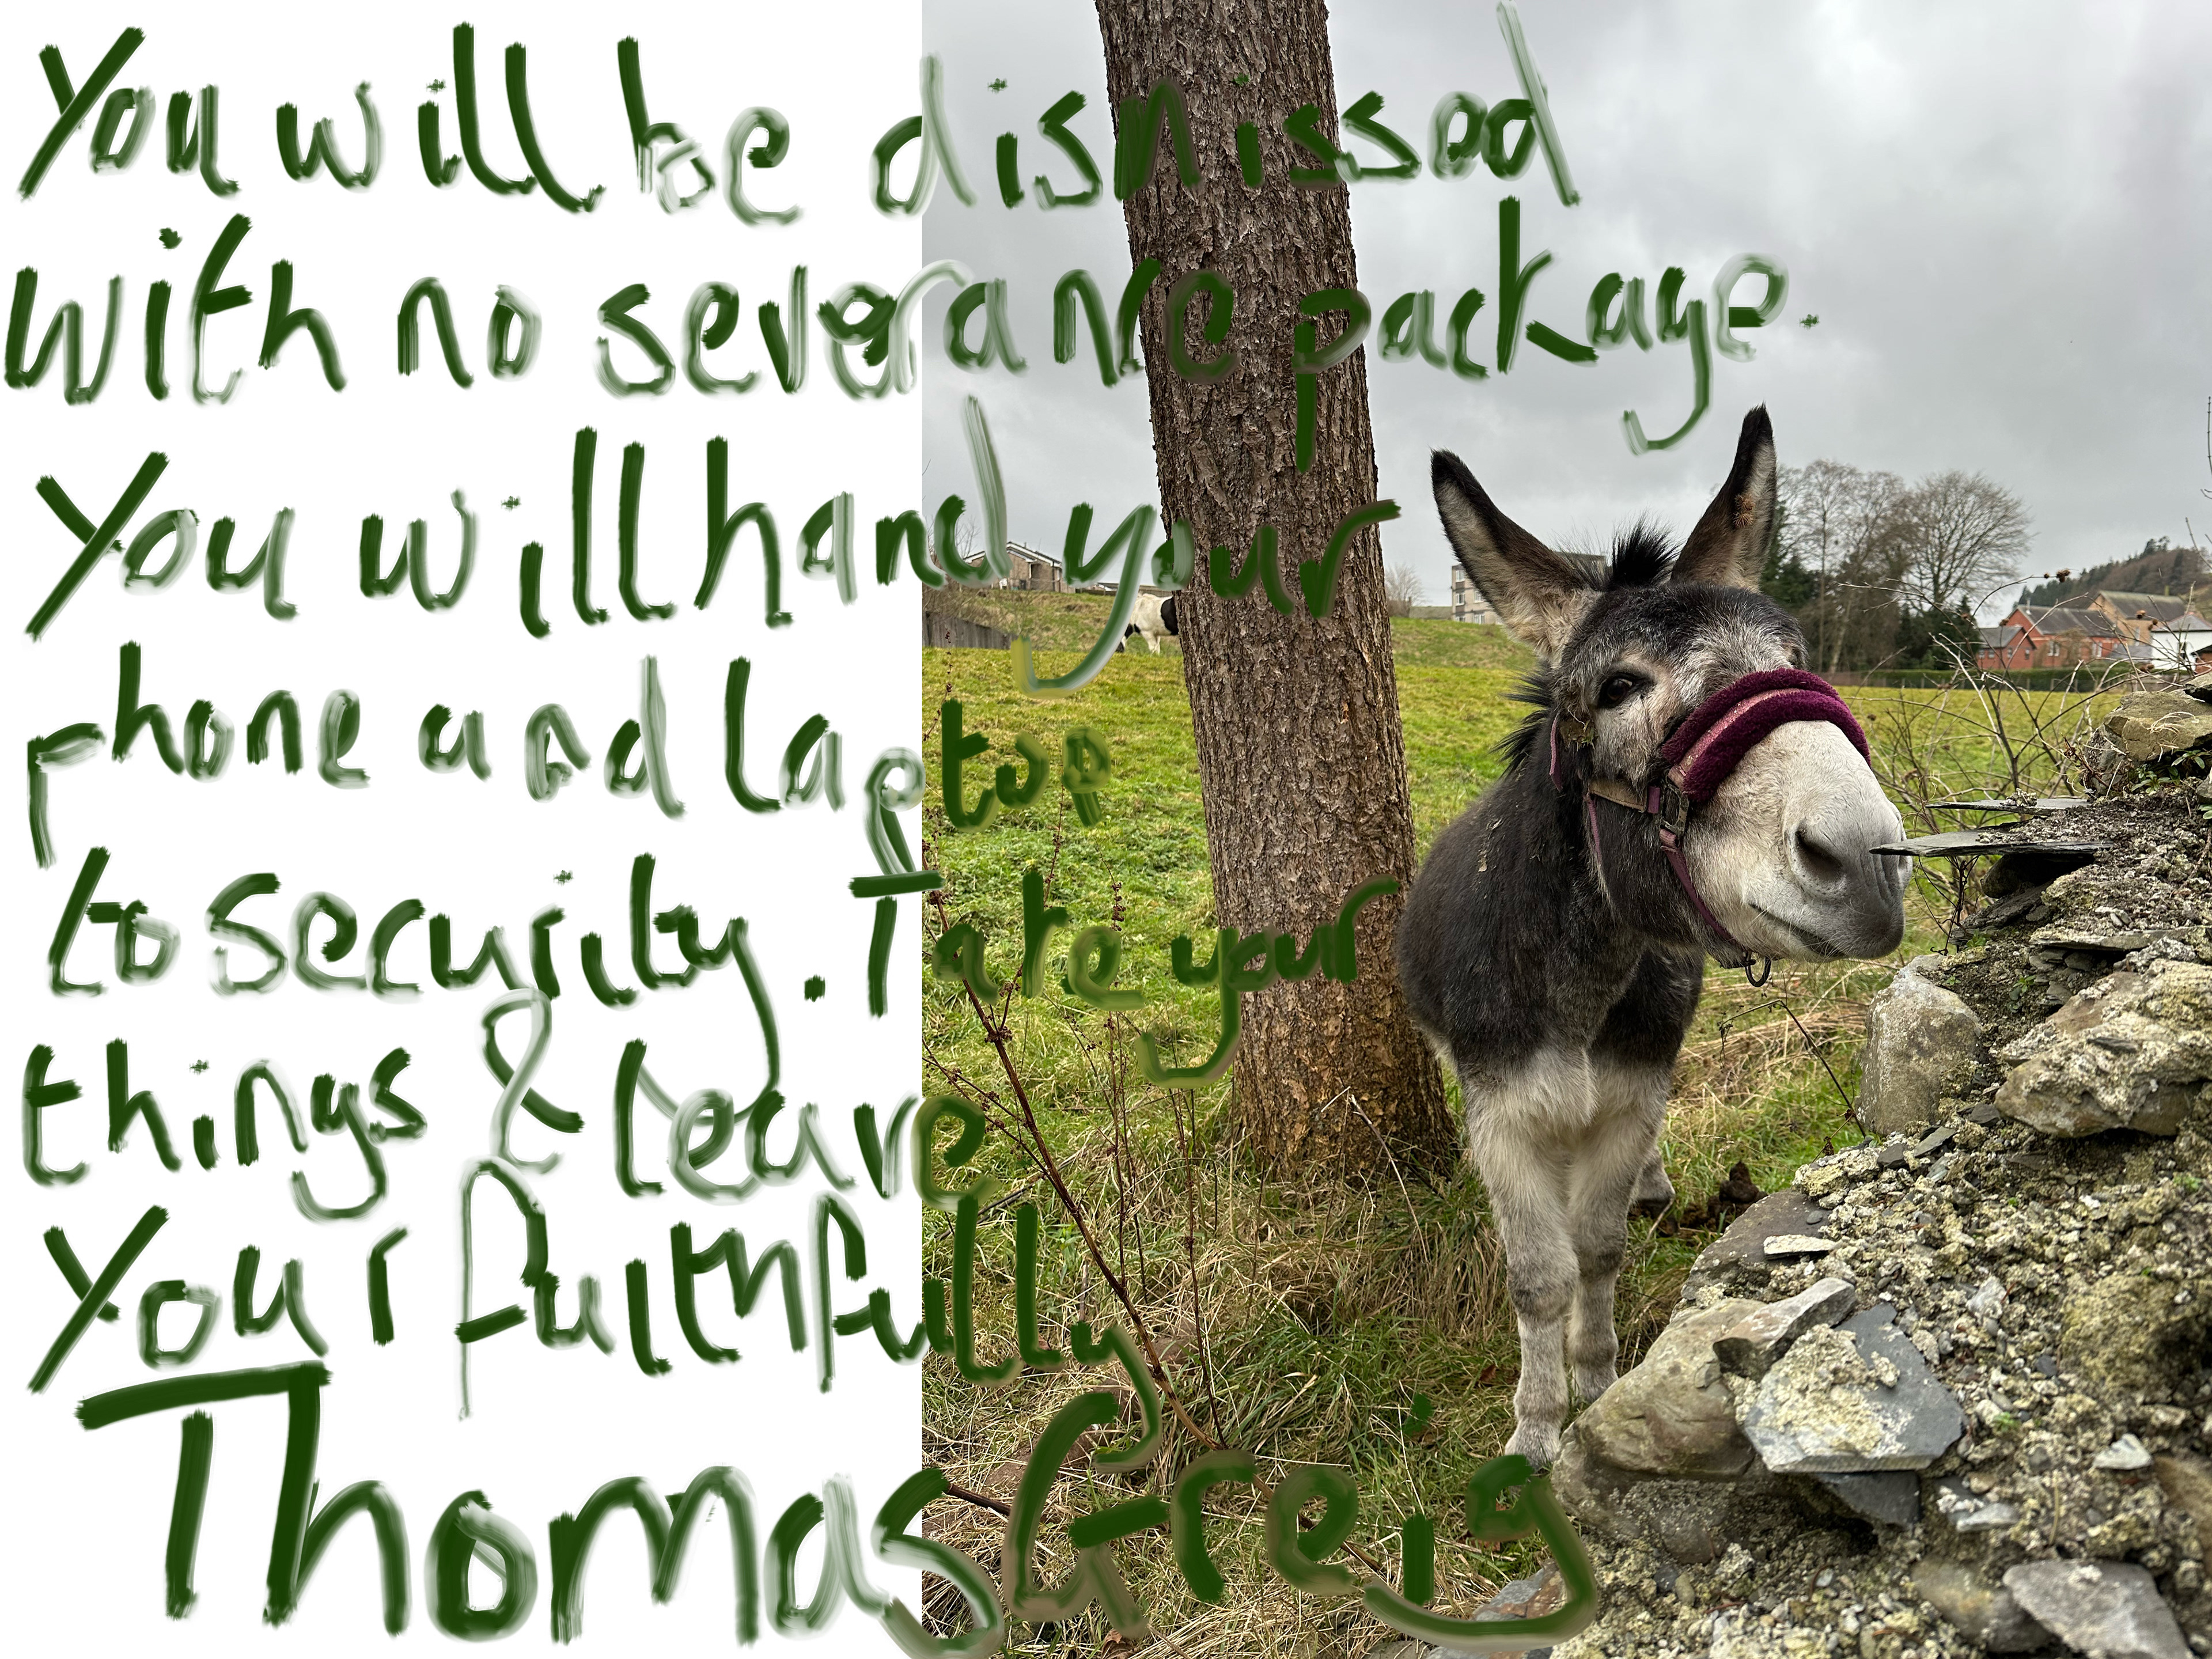 You will be dismissed
with no severance package.
You will hand your
phone and laptop
to security. Take your
things & leave
Your faithfully
Thomas Greig